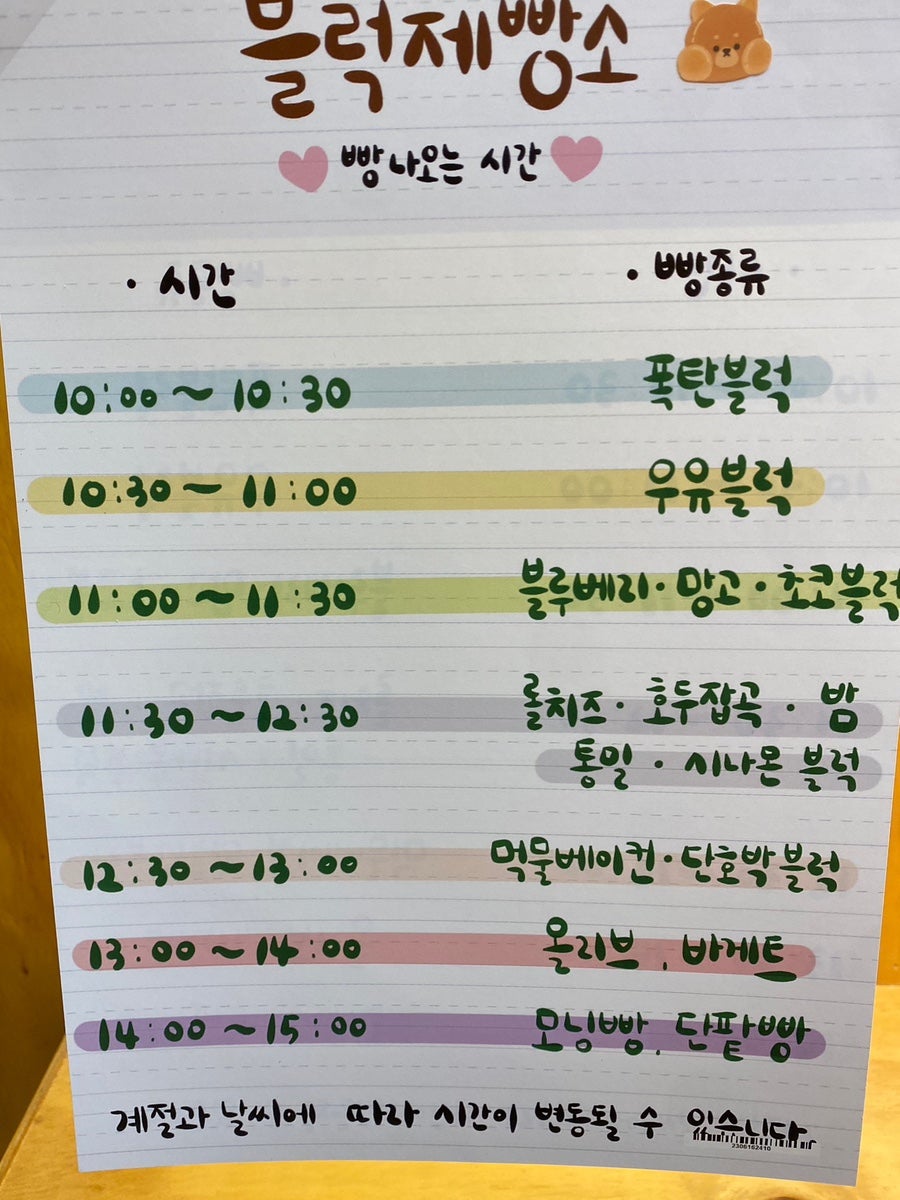 블럭제빵소
빵 나오는 시간
· 시간 · 빵종류
10:00 ~ 10:30 폭탄블럭
10:30 ~ 11:00 우유블럭
11:00 ~ 11:30 블루베리 · 망고 · 초코블럭
11:30 ~ 12:30 롤치즈 · 호두잡곡 · 밤
통밀 · 시나몬 블럭
12:30 ~ 13:00 먹물베이컨 · 단호박 블럭
13:00 ~ 14:00 올리브 . 바게트
14:00 ~ 15:00 모닝빵 . 단팥빵
계절과 날씨에 따라 시간이 변동될 수 있습니다.
2306162410